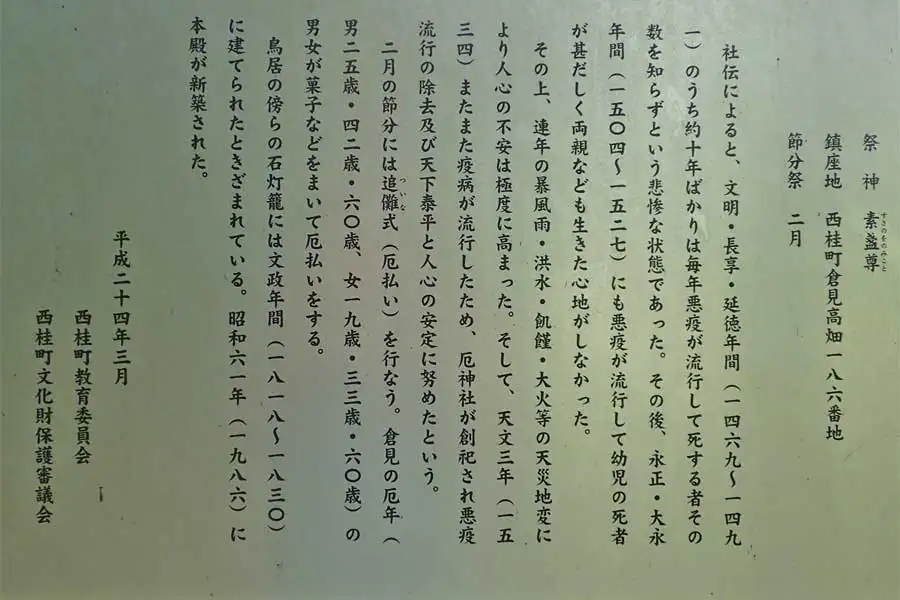 祭神 素盞尊
すさのをのみこと
鎮座地 西桂町倉見高畑一八六番地
節分祭 二月
社伝によると、文明・長享・延徳年間（一四六九〜一四九
一）のうち約十年ばかりは毎年悪疫が流行して死する者その
数を知らずという悲惨な状態であった。その後、永正・大永
年間（一五〇四〜一五二七）にも悪疫が流行して幼児の死者
が甚だしく両親なども生きた心地がしなかった。
その上、連年の暴風雨・洪水・飢饉・大火等の天災地変に
より人心の不安は極度に高まった。そして、天文三年（一五
三四）またまた疫病が流行したため、厄神社が創祀され悪疫
流行の除去及び天下泰平と人心の安定に努めたという。
二月の節分には追儺式（厄払い）を行なう。倉見の厄年（
ついな
男二五歳・四二歳・六〇歳、女一九歳・三三歳・六〇歳）の
男女が菓子などをまいて厄払いをする。
鳥居の傍らの石灯籠には文政年間（一八一八〜一八三〇）
に建てられたときざまれている。昭和六一年（一九八六）に
本殿が新築された。
平成二十四年三月
西桂町教育委員会
西桂町文化財保護審議会